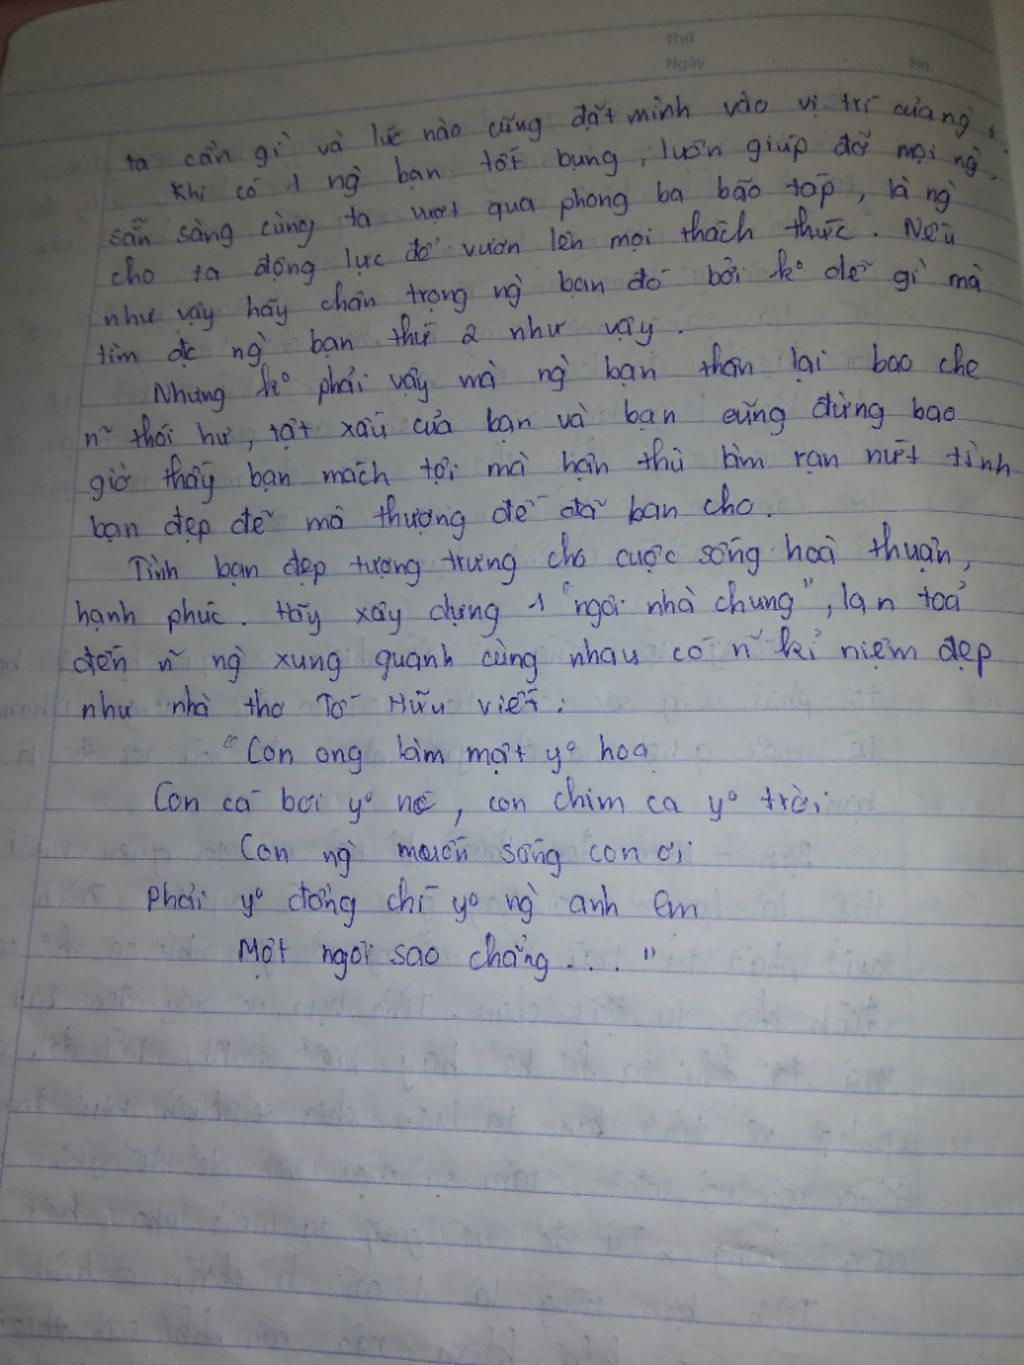 Thứ
Ngày No.
ta cần gì và lúc nào cũng đặt mình vào vị trí của ng̀ +
Khi có 1 ng̀ bạn tốt bụng, luôn giúp đỡ mọi ng̀,
sẵn sàng cùng ta vượt qua phong ba bão táp, là ng̀
cho ta động lực để vươn lên mọi thách thức. Nếu
như vậy hãy chân trọng ng̀ bạn đó bởi k° dễ gì mà
tìm đc ng̀ bạn thứ 2 như vậy.
Nhưng k° phải vậy mà ng̀ bạn thân lại bao che
n~ thói hư, tật xấu của bạn và bạn cũng đừng bao
giờ thấy bạn mách tội mà hận thù làm rạn nứt tình
bạn đẹp đẽ mà thượng đế đã ban cho.
Tình bạn đẹp tượng trưng cho cuộc sống hoà thuận,
hạnh phúc. Hãy xây dựng 1 "ngôi nhà chung", lan toả
đến n~ ng̀ xung quanh cùng nhau có n~ kỉ niệm đẹp
như nhà thơ Tố Hữu viết:
"Con ong làm mật y° hoa
Con cá bơi y° nc, con chim ca y° trời
Con ng̀ muốn sống con ơi
Phải y° đồng chí y° ng̀ anh em
Một ngôi sao chẳng . . . . "